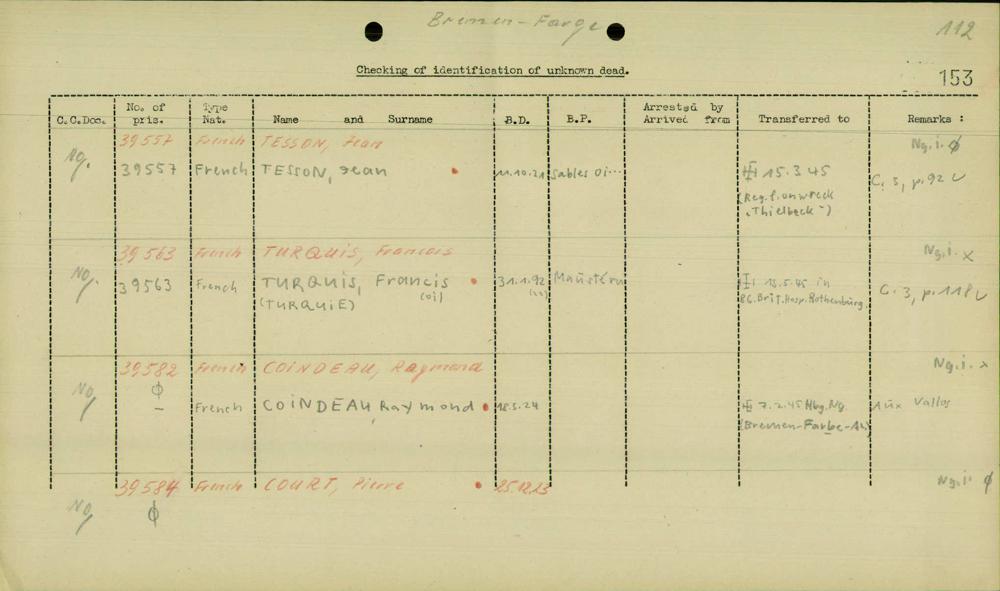 Bremen-Farge
112
Checking of identification of unknown dead.
153
C.C.Doc. No. of pris. Type Nat. Name and Surname B.D. B.P. Arrested by Arrived from Transferred to Remarks :
39557 French TESSON, Jean Ng.i. ϕ
Ng. 39557 French TESSON, Jean 11.10.21 Sables Ol... 15.3.45 C. 3, p.92
(Reg. f. on wreck
"Thielbeck")
39563 French TURQUIS, Francois Ng.i. x
Ng. 39563 French TURQUIS, Francis 31.1.92 15.5.45 in C. 3, p.118
(TURQUIE) (oi) Brit.Hosp. Rothenburg.
39582 French COINDEAU, Raymond Ng.i. x
Ng ϕ
- French COINDEAU Raymond 18.5.24 7.2.45 Hbg.Ng. Aux Vallos
(Bremen-Farbe-
39584 French COURT, Pierre 25.12.23 Ng.i. ϕ
Ng ϕ